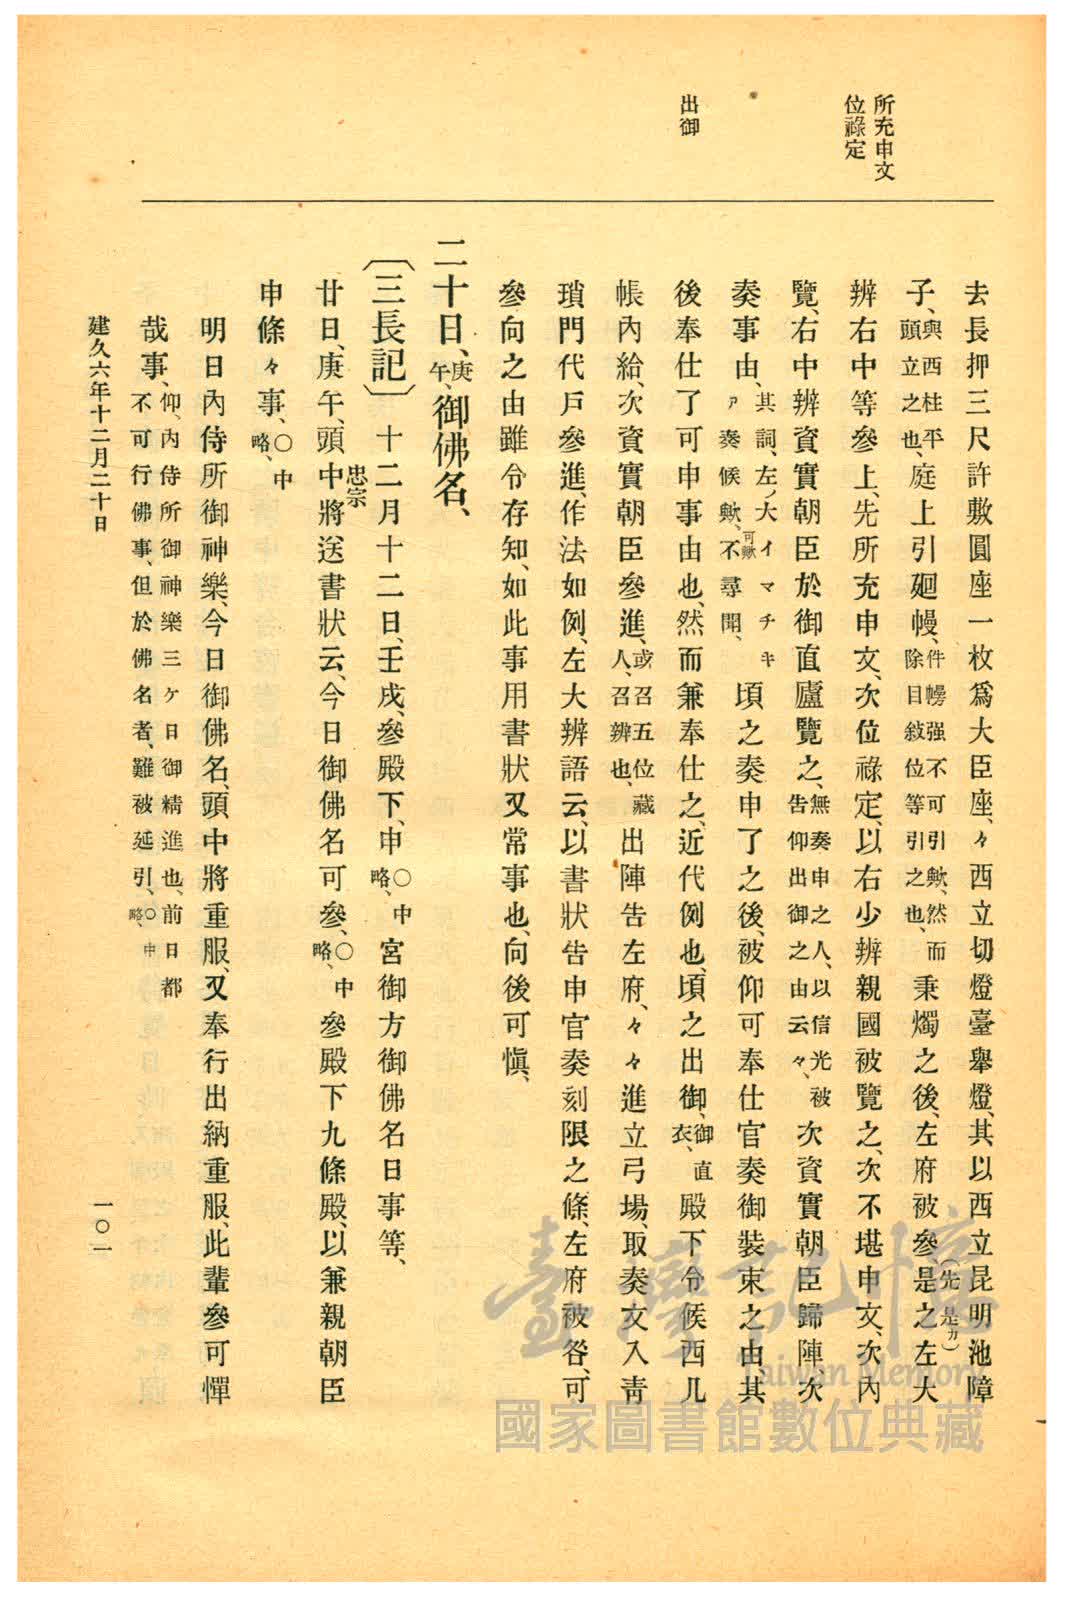 所充申文
位祿定
出御
去長押三尺許敷圓座一枚爲大臣座、々西立切燈臺舉燈、其以西立昆明池障
子、與西柱平頭立之也、庭上引廻幔、件幔强不可引歟、然而除目敍位等引之也、秉燭之後、左府被參是之左大(先是カ)
辨右中等參上、先所充申文、次位祿定、以右少辨親國被覽之、次不堪申文、次內
覽、右中辨資實朝臣於御直廬覽之、無奏申之人、以信光被告仰出御之由云々、次資實朝臣歸陣、次
奏事由、其詞、左ノ大イマチキァ奏候歟、不可歟尋聞、頃之奏申了之後、被仰可奉仕官奏御裝束之由、其
後奉仕了可申事由也、然而兼奉仕之、近代例也、頃之出御、御直衣、殿下令候西几
帳內給、次資實朝臣參進、或召五位藏人、召辨也、出陣告左府、々々進立弓場、取奏文入靑
瑣門代戶參進、作法如例、左大辨語云、以書狀告申官奏刻限之條、左府被咎、可
參向之由雖令存知、如此事用書狀又常事也、向後可愼、
二十日、庚午、御佛名、
〔三長記〕十二月十二日、壬戌、參殿下、申〇中略、宮御方御佛名日事等、
廿日、庚午、頭中將忠宗送書狀云、今日御佛名可參、〇中略、參殿下九條殿、以兼親朝臣
申條々事、〇中略、
明日內侍所御神樂、今日御佛名、頭中將重服、又奉行出納重服、此輩參可憚
哉事、仰、內侍所御神樂三ケ日御精進也、前日都不可行佛事、但於佛名者、難被延引、〇中略、
建久六年十二月二十日
一〇一
臺灣記憶
Taiwan Memory
國家圖書館數位典藏